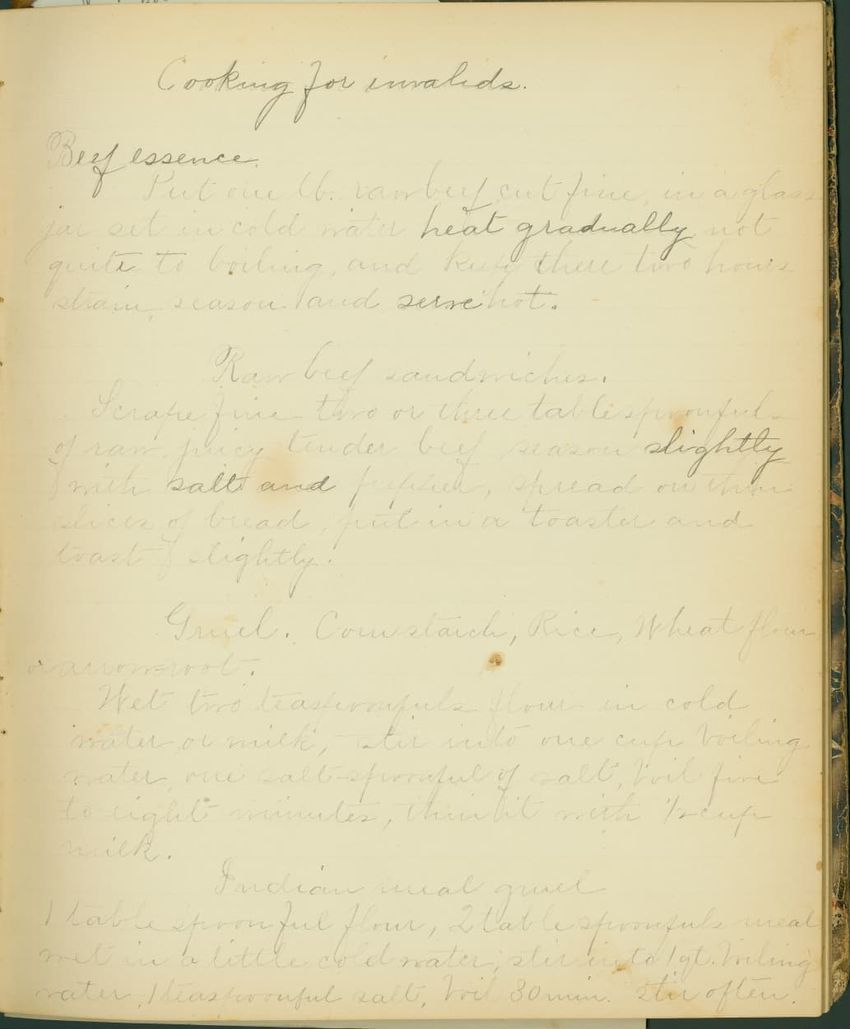 Cooking for invalids.
Beef essence.
Put one lb. raw beef, cut fine, in a glass
jar set in cold water heat gradually not
quite to boiling, and keep there two hours
strain, season and serve hot.
Raw beef sandwiches.
Scrape fine two or three tablespoonfuls
of raw juicy tender beef, season slightly
with salt and pepper, spread on thin
slices of bread, put in a toaster and
toast slightly.
Gruel. Cornstarch, Rice, Wheat flour
or arrowroot.
Wet two teaspoonfuls flour in cold
water or milk, stir into one cup boiling
water, one salt-spoonful of salt, boil five
to eight minutes, thin it with ½ cup
milk.
Indian meal gruel
1 table spoonful flour, 2 table spoonfuls meal
wet in a little cold water, stir into 1 qt. boiling
water, 1 teaspoonful salt, boil 30 min. Stir often.